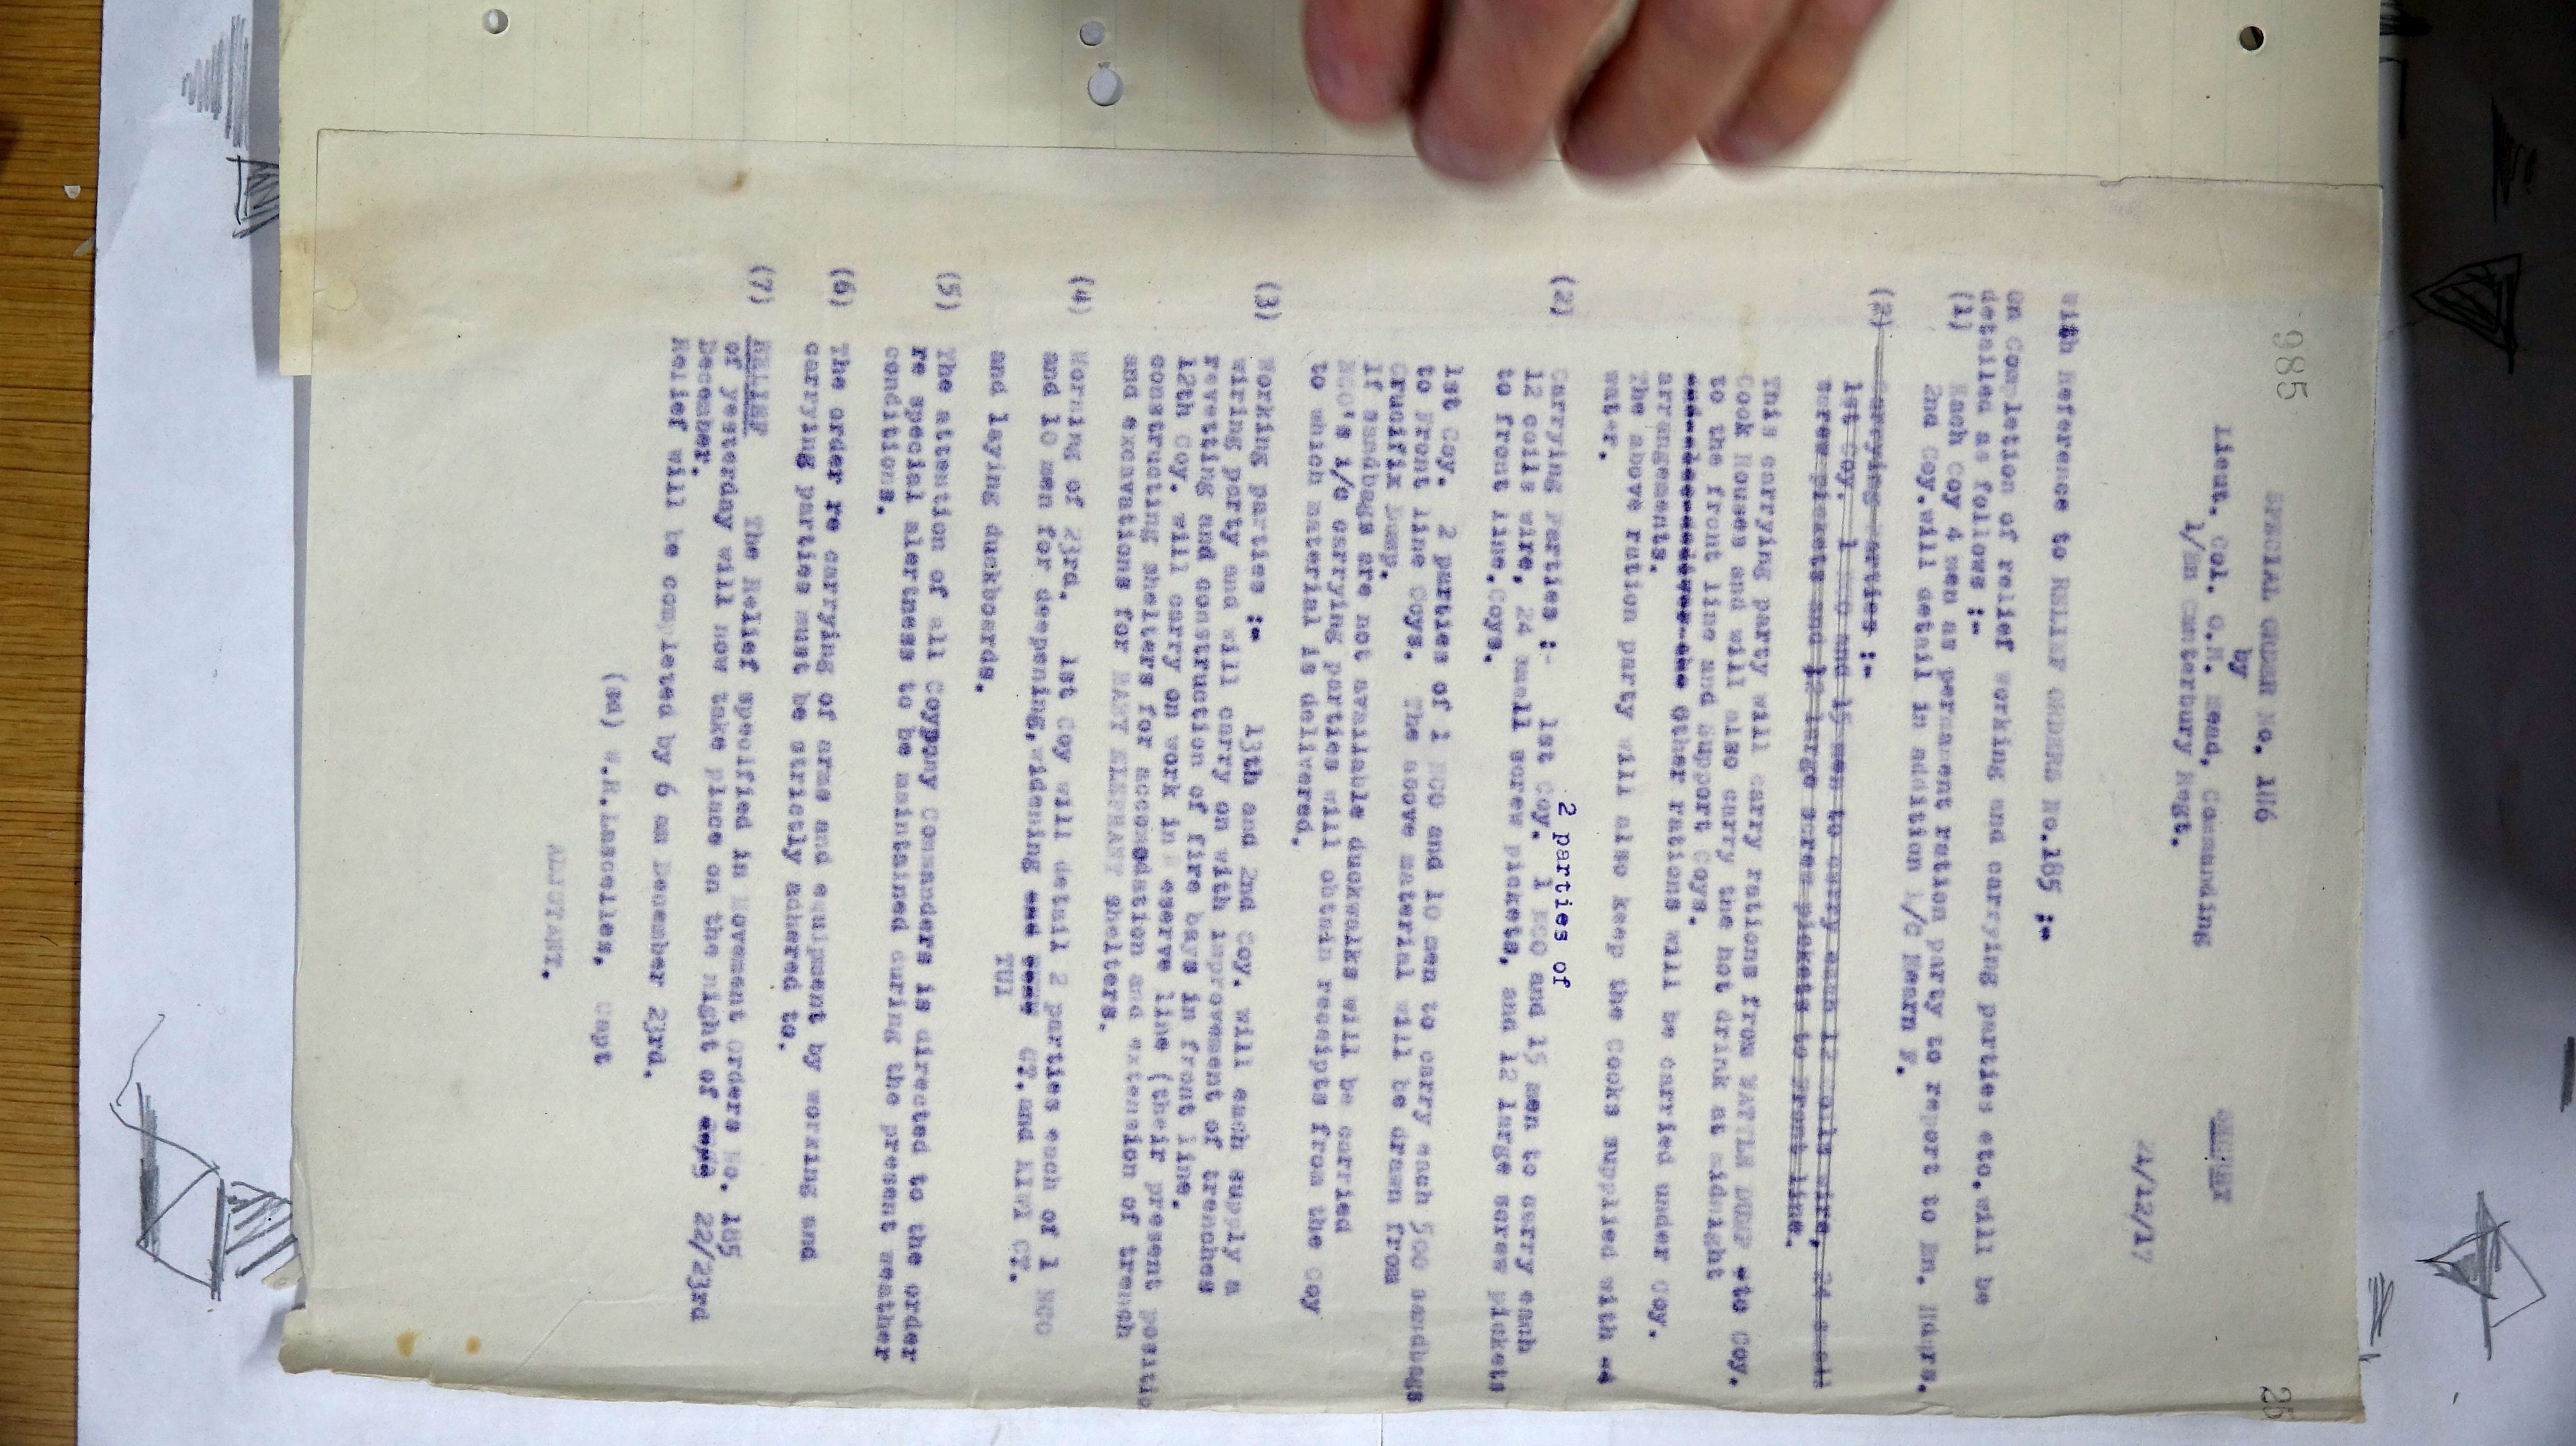 985
25
SPECIAL ORDER No. 186
by
Lieut. Col. G.H. Mead, Commanding
1/Bn Canterbury Regt.
SECRET
21/12/17
With Reference to RELIEF ORDERS No.185 :-
On Completion of relief working and carrying parties etc. will be
detailed as follows :-
(1) Each Coy 4 men as permanent ration party to report to Bn. Hdqrs.
2nd Coy.will detail in addition 1/C Hearn F.
(2) Carrying Parties :-
1st Coy. 1 NCO and 15 men to carry each 12 coils wire, 24 small
screw pickets and 12 large screw pickets to front line.
This carrying party will carry rations from WATTLE DUMP to Coy.
Cook Houses and will also carry the hot drink at midnight
to the front line and Support Coys.
Other rations will be carried under Coy.
arrangements.
The above ration party will also keep the cooks supplied with
water.
(2) Carrying Parties :- 1st Coy. 2 parties of 1 NCO and 15 men to carry each
12 coils wire, 24 small screw pickets, and 12 large screw pickets
to front line.Coys.
1st Coy. 2 parties of 1 NCO and 10 men to carry each 500 sandbags
to Front line Coys. The above material will be drawn from
Crucifix Dump.
If sandbags are not available duckwalks will be carried
NCO's i/c carrying parties will obtain receipts from the Coy
to which material is delivered.
(3) Working parties :- 13th and 2nd Coy. will each supply a
wiring party and will carry on with improvement of trenches
revetting and construction of fire bays in front line.
12th Coy. will carry on work in Reserve line (their present positio
constructing shelters for accomodation and extension of trench
and excavations for BABY ELEPHANT shelters.
(4) Morning of 23rd. 1st Coy will detail 2 parties each of 1 NCO
and 10 men for deepening,widening and TUI CT. and KIWI CT.
and laying duckboards.
(5) The attention of all Company Commanders is directed to the order
re special alertness to be maintained during the present weather
conditions.
(6) The order re carrying of arms and equipment by working and
carrying parties must be strictly adhered to.
(7) RELIEF The Relief specified in Movement Orders No. 185
of yesterday will now take place on the night of 22/23rd
December.
Relief will be completed by 6 am December 23rd.
(sd) W.R.Lascelles, Capt
ADJUTANT.